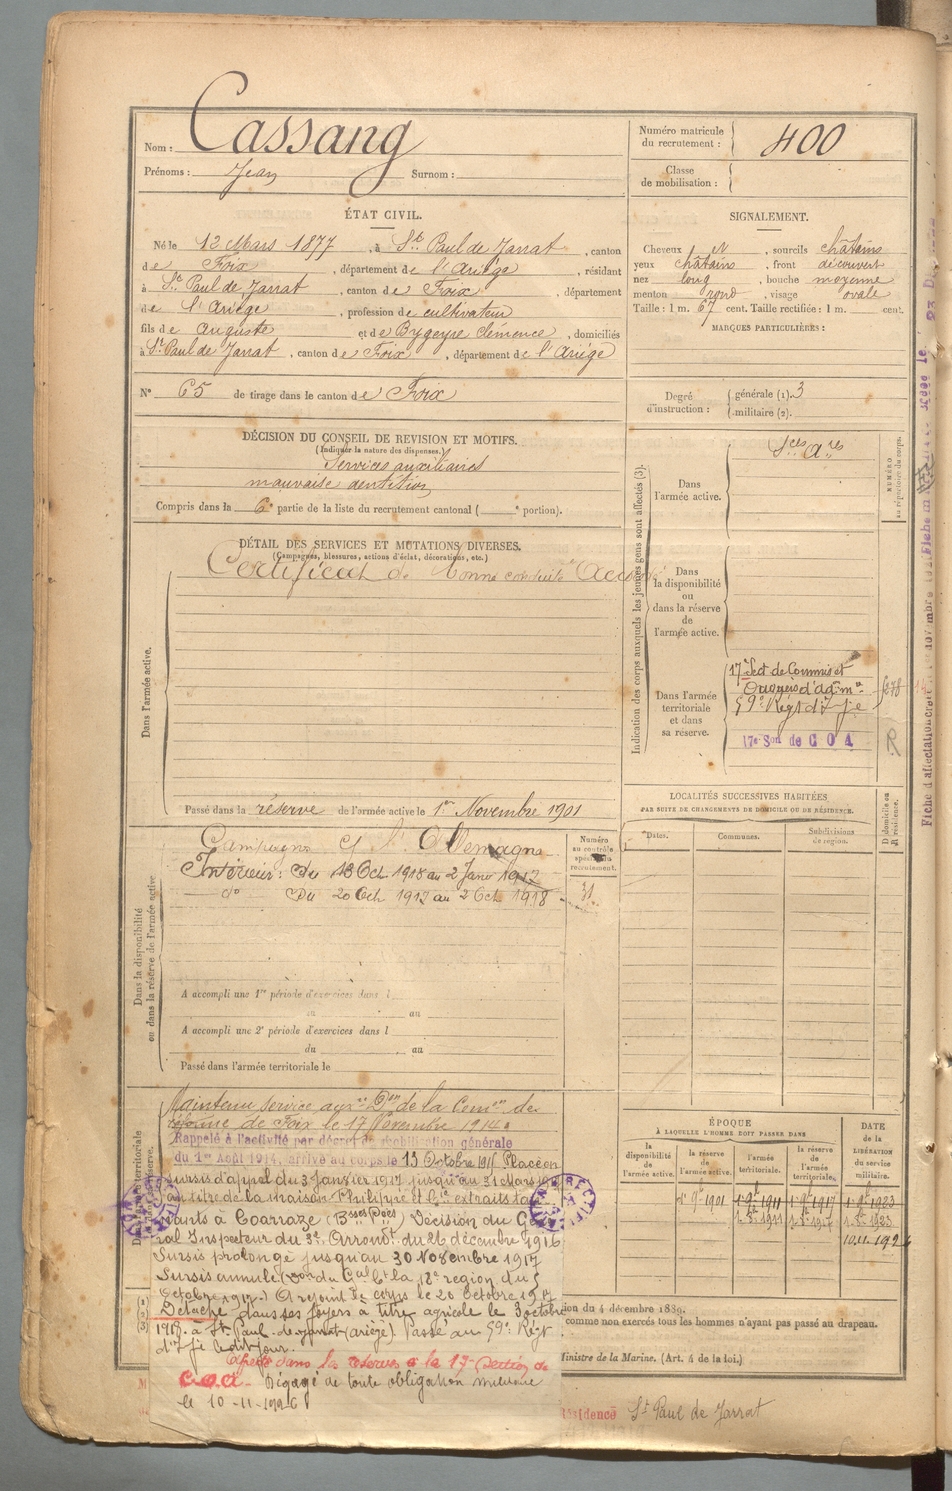 Nom : Cassang
Prénoms : Jean Surnom :
Numéro matricule du recrutement : 400
Classe de mobilisation :
ÉTAT CIVIL.
Né le 12 Mars 1877, à St Paul de Jarrat, canton
de Foix, département de l'Ariège, résidant
à St Paul de Jarrat, canton de Foix, département
de l'Ariège, profession de cultivateur
fils de Auguste et de Bygeyre Clémence, domiciliés
à St Paul de Jarrat, canton de Foix, département de l'Ariège
N° 65 de tirage dans le canton de Foix
SIGNALEMENT.
Cheveux N, sourcils châtains
yeux châtains, front découvert
nez long, bouche moyenne
menton rond, visage ovale
Taille : 1 m. 67 cent. Taille rectifiée : 1 m. cent.
MARQUES PARTICULIÈRES :
Degré d'instruction : générale (1). 3
militaire (2).
DÉCISION DU CONSEIL DE REVISION ET MOTIFS.
(Indiquer la nature des dispenses.)
Services auxiliaires
mauvaise dentition
Compris dans la 6e partie de la liste du recrutement cantonal ( e portion).
DÉTAIL DES SERVICES ET MUTATIONS DIVERSES.
(Campagnes, blessures, actions d'éclat, décorations, etc.)
Certificat de bonne conduite Accordé
Dans l'armée active.
Passé dans la réserve de l'armée active le 1er Novembre 1901
Indication des corps auxquels les jeunes gens sont affectés (3).
Dans l'armée active.
Sces Ares
NUMÉRO au répertoire du corps.
Dans la disponibilité ou dans la réserve de l'armée active.
Dans l'armée territoriale et dans sa réserve.
17e Sect de Commis et
Ouvriers d'adm on
59e Régt d'Inf ie
17e Son de C O A
278
R
LOCALITÉS SUCCESSIVES HABITÉES
PAR SUITE DE CHANGEMENTS DE DOMICILE OU DE RÉSIDENCE.
Dates. Communes. Subdivisions de région. D domicile ou R résidence.
Campagne c/ l'Allemagne
Intérieur : Du 13 Oct 1916 au 2 Janv 1917
do Du 20 Oct 1917 au 2 Oct 1918
Numéro au contrôle spécial du recrutement.
Dans la disponibilité ou dans la réserve de l'armée active
A accompli une 1re période d'exercices dans l
du au
A accompli une 2e période d'exercices dans l
du au
Passé dans l'armée territoriale le
Maintenu service auxre Don de la Comon de
réforme de Foix le 17 Novembre 1914.
Rappelé à l'activité par décret de mobilisation générale
du 1er Août 1914, arrivé au corps le 13 Octobre 1916 Placé en
sursis d'appel du 3 janvier 1917 jusqu'au 31 Mars
au titre de la maison Philippe et Cie extraits tan
nants à Coarraze (Bsses Pées) Décision du Géné
ral Inspecteur du 3e Arrondt du 26 décembre 1916
Sursis prolongé jusqu'au 30 Novembre 1917
Sursis annulé (Don du Gal Ct la 18e region du 5
Octobre 1917.) A rejoint le corps le 20 Octobre 1917
Détaché dans ses foyers à titre agricole le 3 octobre
1918. à St Paul de Jarrat (ariège). Passé au 59e Régt
d'Inf ie le dit jour.
Affecté dans la réserve à la 17e Section de
C.O.A. Dégagé de toute obligation militaire
le 10-11-1926
ÉPOQUE
À LAQUELLE L'HOMME DOIT PASSER DANS
la disponibilité de l'armée active. la réserve de l'armée active. l'armée territoriale. la réserve de l'armée territoriale.
DATE de la LIBÉRATION du service militaire.
1er 9bre 1901 1er 9bre 1911 1er 9bre 1917 1er 9bre 1923
1er 8bre 1911 1er 8bre 1917 1er 8bre 1923
10.11.1926
ion du 4 décembre 1889.
comme non exercés tous les hommes n'ayant pas passé au drapeau.
Ministre de la Marine. (Art. 4 de la loi.)
Résidence St Paul de Jarrat